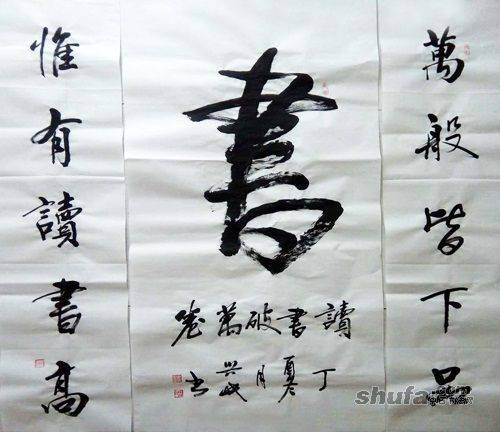 萬般皆下品
書
讀書破萬卷
丁 月 书
惟有讀書高
shufa